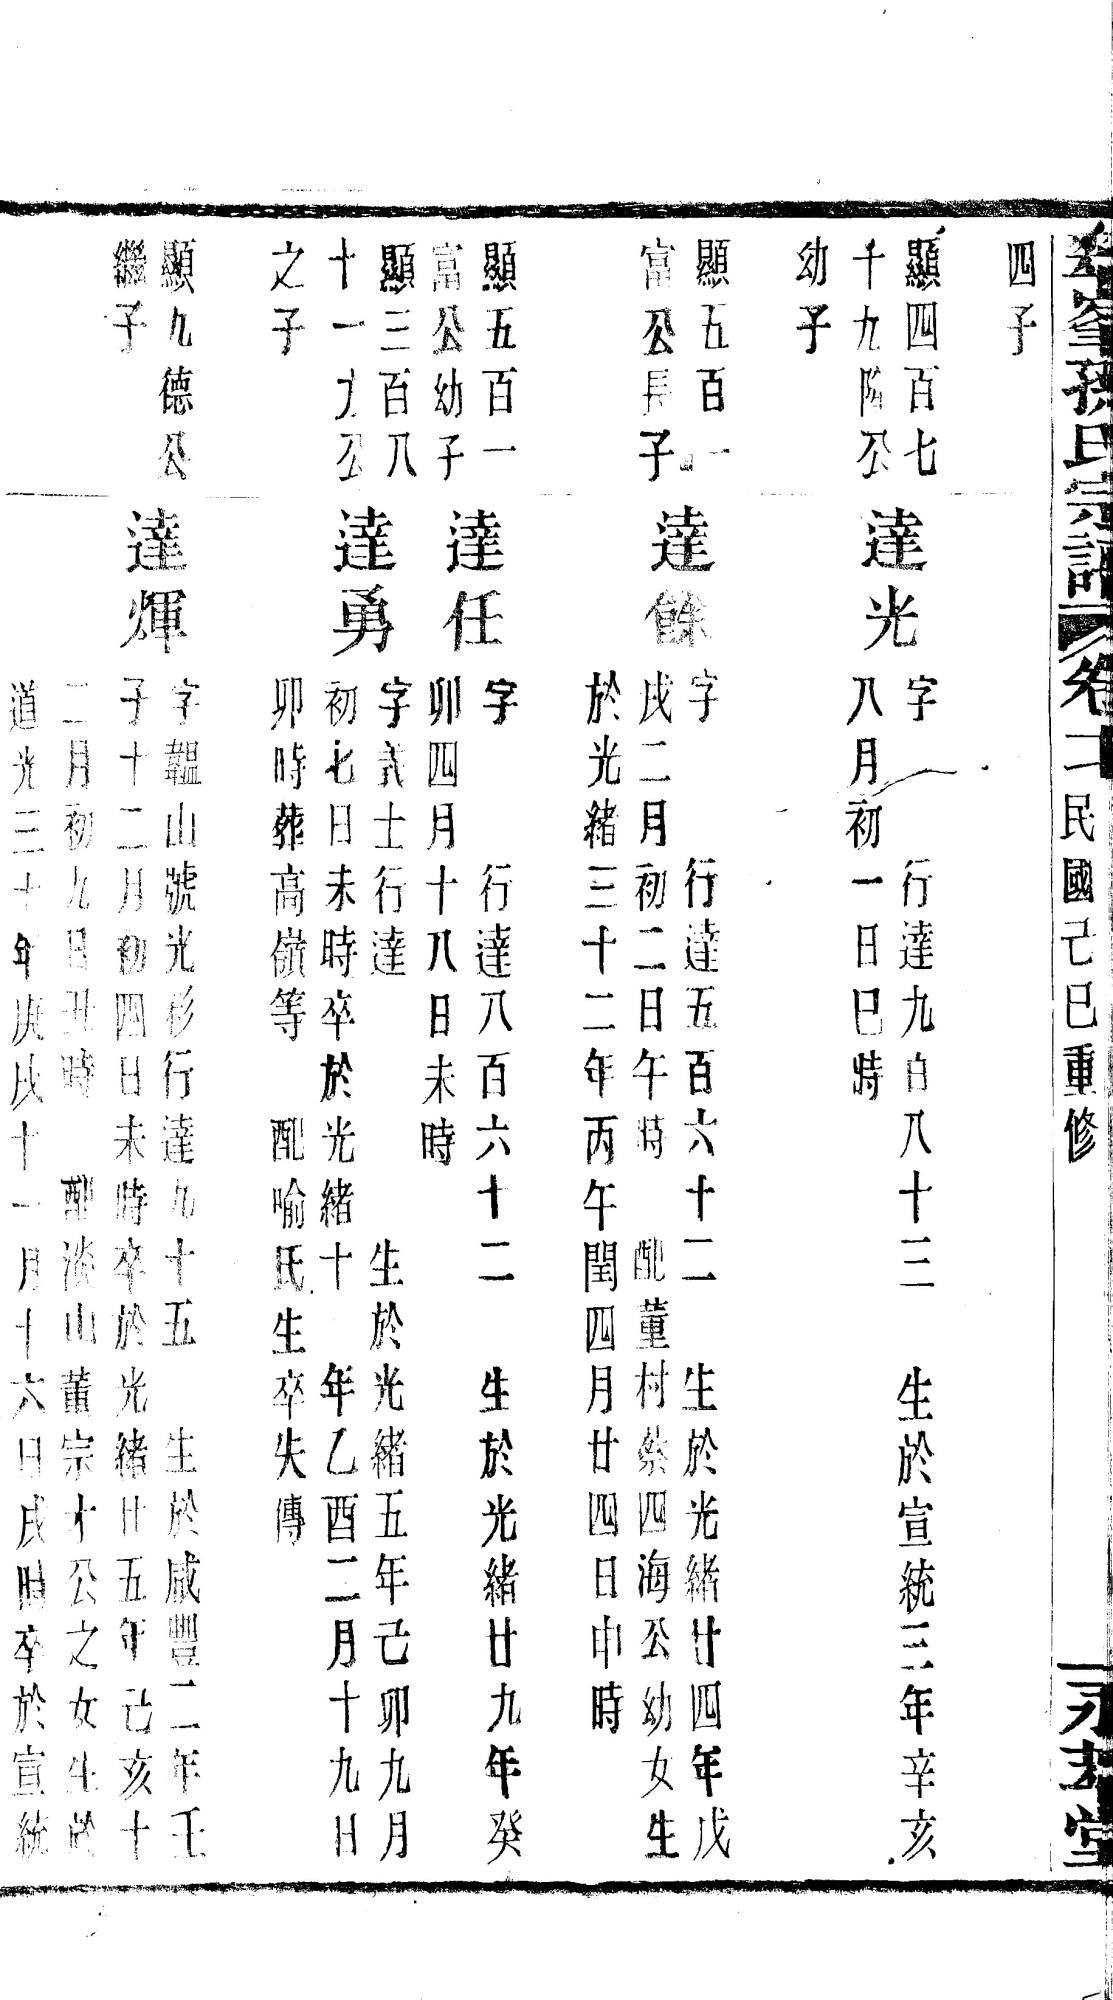 孫氏宗譜 卷二 民國己巳重修 堂
四子
顯四百七
千九陞公
幼子
達光
字 行達九百八十三 生於宣統三年辛亥
八月初一日巳時
顯五百一
富公長子
達餘
字 行達五百六十二 生於光緒廿四年戊
戌二月初二日午時 配董村蔡四海公幼女生
於光緒三十二年丙午閏四月廿四日申時
顯五百一
富公幼子
達任
字 行達八百六十二 生於光緒廿九年癸
卯四月十八日未時
顯三百八
十一九公
之子
達勇
字義士行達 生於光緒五年己卯九月
初七日未時卒於光緒十 年乙酉二月十九日
卯時葬高嶺等 配喻氏生卒失傳
顯九德公
繼子
達輝
字韞山號光彩行達九十五 生於咸豐二年壬
子十二月初四日未時卒於光緒廿五年己亥十
二月初九日丑時 配淡山董宗才公之女生於
道光三十年庚戌十一月十六日戌時卒於宣統